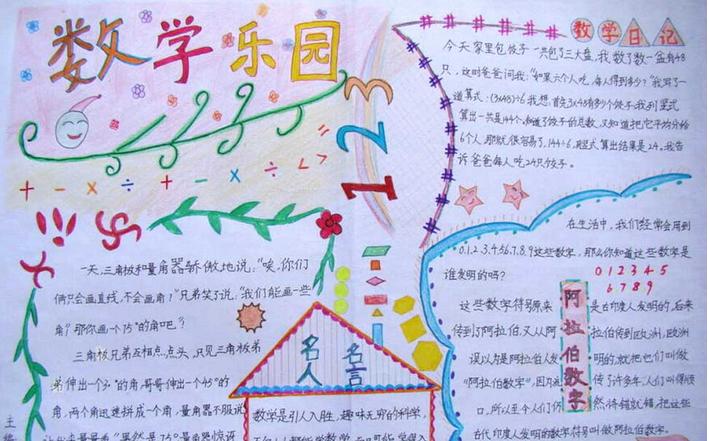 数学乐园
+ - × ÷ + - × ÷ < >
1 2 3
数学日记
今天家里包饺子一共包了三大盘,我数了数一盆有48
只,这时爸爸问我:"如果六个人吃,每人得到多少?"我写了一
道算式:(3×48)÷6我想:首先3×48有多少个饺子,我列竖式
算出一共是144个,知道了饺子的总数,又知道把它平均分给
6个人,那就很容易了,144÷6,用竖式算出结果是24。我告
诉爸爸每人吃24只饺子。
一天,三角板和量角器骄傲地说:"唉,你们
俩只会画直线,不会画角!"兄弟笑了说:"我们能画一些
角?那你画一个75°的角吧?"
三角板兄弟互相点点头,只见三角板弟
弟伸出一个30°的角,哥哥伸出一个45°的
角,两个角迅速拼成一个角,量角器不服说
名人
名言
数学是引人入胜,趣味无穷的科学,
在生活中,我们经常会用到
0.1.2.3.4.5.6.7.8.9这些数字,那么你知道这些数字是
谁发明的吗?
0 1 2 3 4 5
6 7 8 9
阿拉伯数字
这些数字符号原来 是古印度人发明的,后来
传到了阿拉伯,又从阿 拉伯传到欧洲,欧洲
误以为是阿拉伯人发 明的,就把它们叫做
"阿拉伯数字",因为 传了许多年,人们叫得顺
口,所以至今人们 然将错就错,把这些
古代印度人发明的数字符号叫做阿拉伯数字。